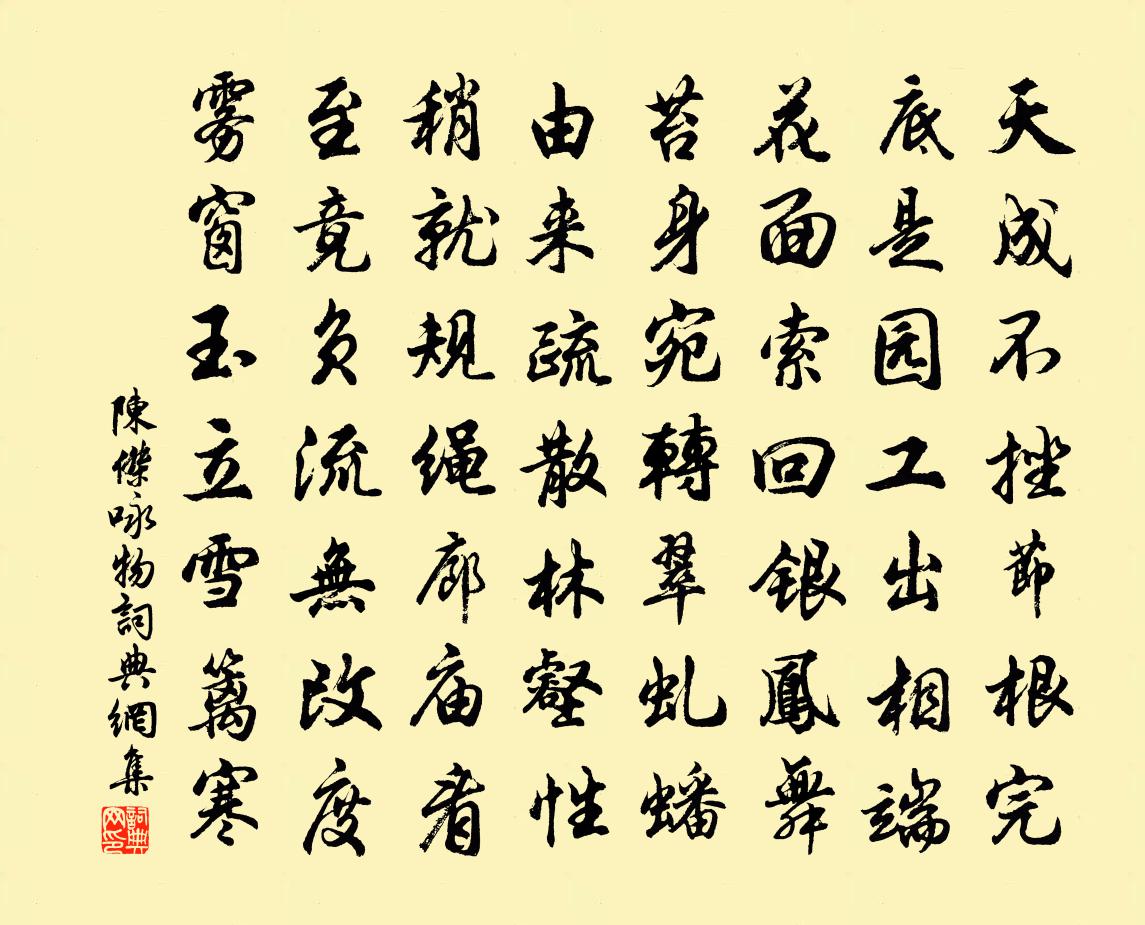 天成不挫節根完
底是园工出相端
花面索回銀鳳舞
苔身宛轉翠虬蟠
由来疏散林壑性
稍就規绳廊庙看
至竟负流無改度
雾窗玉立雪篱寒
陳傑咏物詞典網集
詞典网印